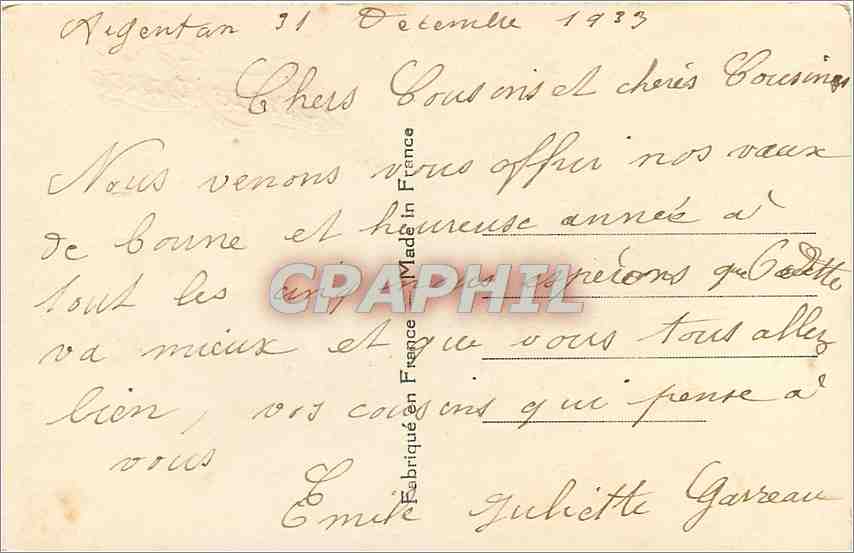 Argentan 31 Decembre 1933
Chers Cousins et cheres Cousines
Nous venons vous offrir nos vœux
de bonne et heureuse année à
tout les cinq nous espérons que Odette
va mieux et que vous tous allez
bien, vos cousins qui pense à
vous
Emile Juliette Garreau
Fabriqué en France - Made in France
CPAPHIL